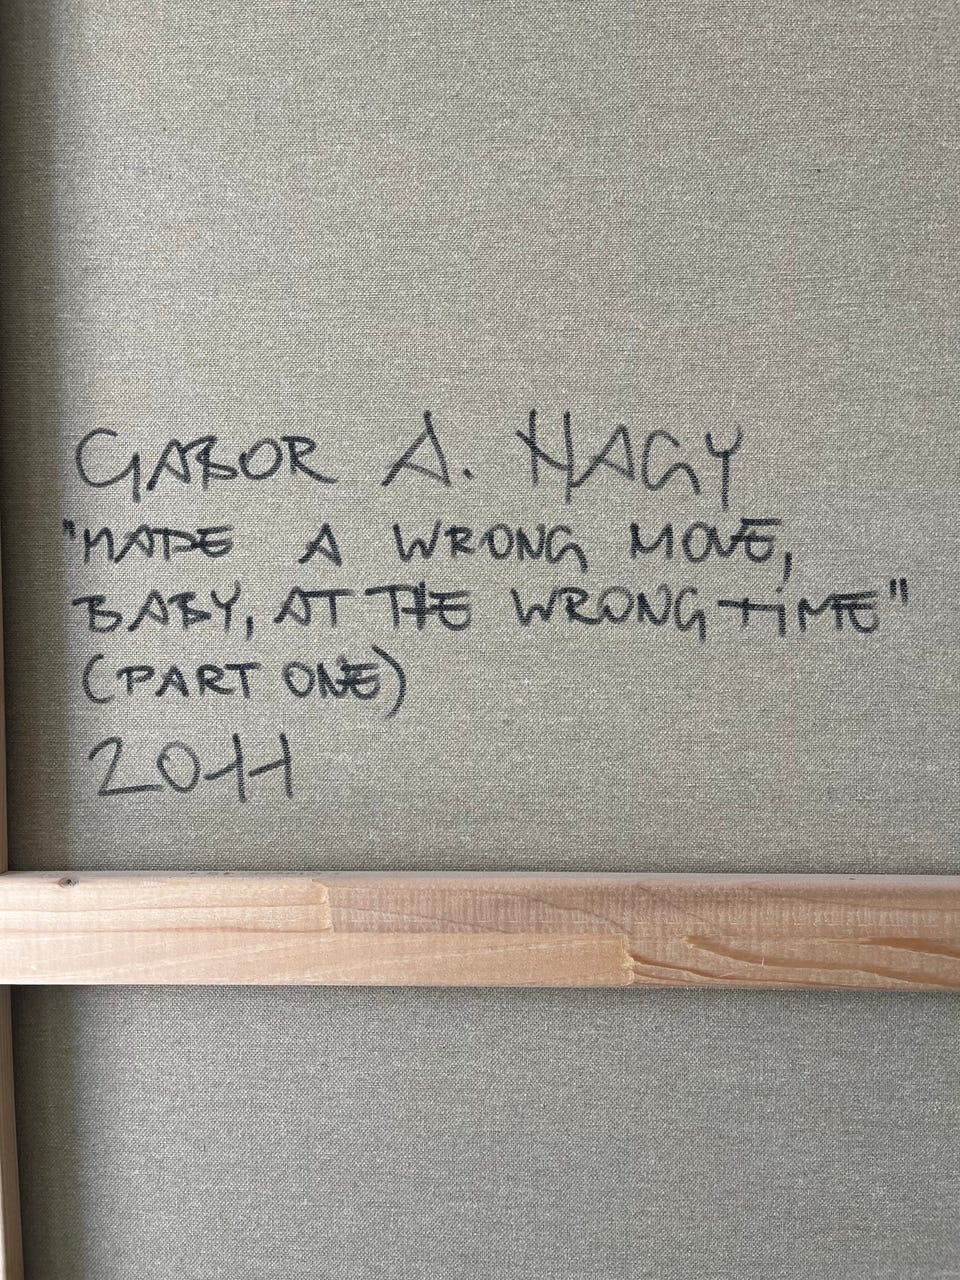 GABOR A. NAGY
"MADE A WRONG MOVE,
BABY, AT THE WRONG TIME"
(PART ONE)
2011